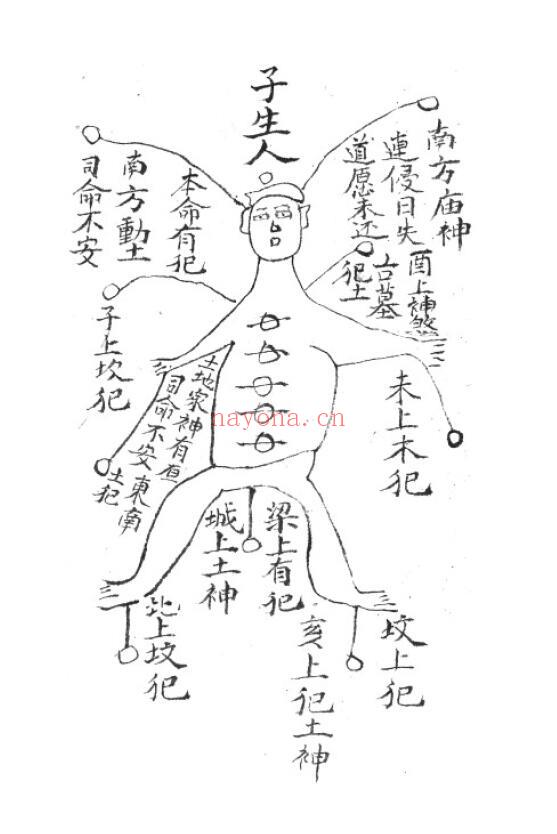 子生人
南方庙神
連侵日失
道愿未还
酉上神煞
古墓
犯土
本命有犯
南方動土
司命不安
子上坎犯
未上木犯
土地家神有
司命不安東南
土犯
nayona.cn
梁上有犯
城上土神
坟上犯
亥上犯土神
北上坟犯